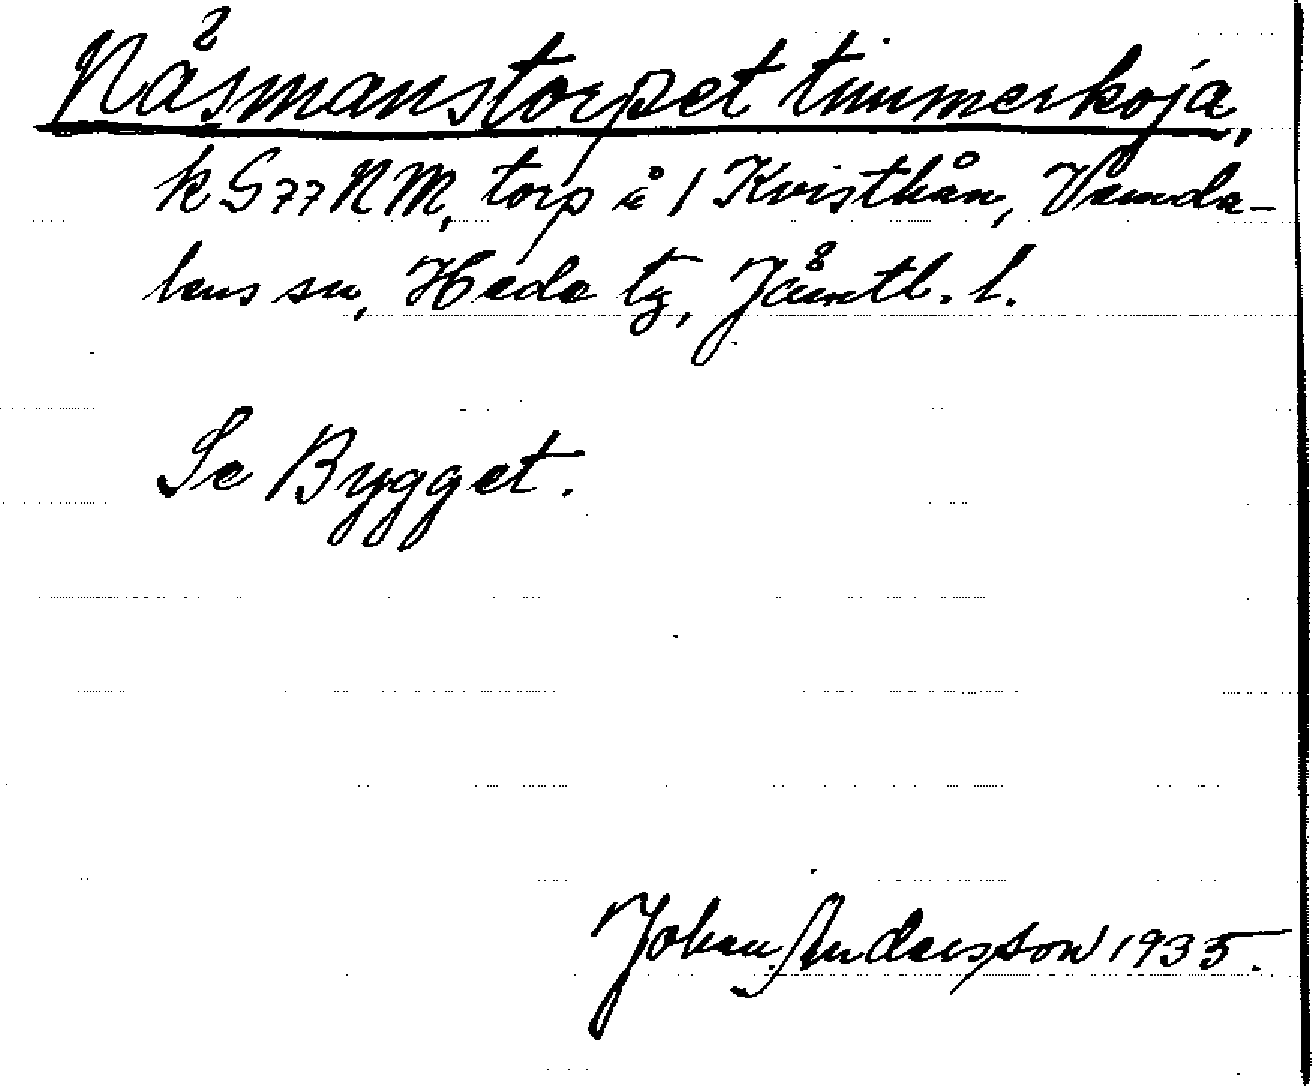 Nåsmanstorpet timmerkoja,
k G 77 NM, torp å / Kvisthån, Vemda-
lens sn, Hede tg, Jämtl. l.
Se Bygget.
Johan Andersson 1935.